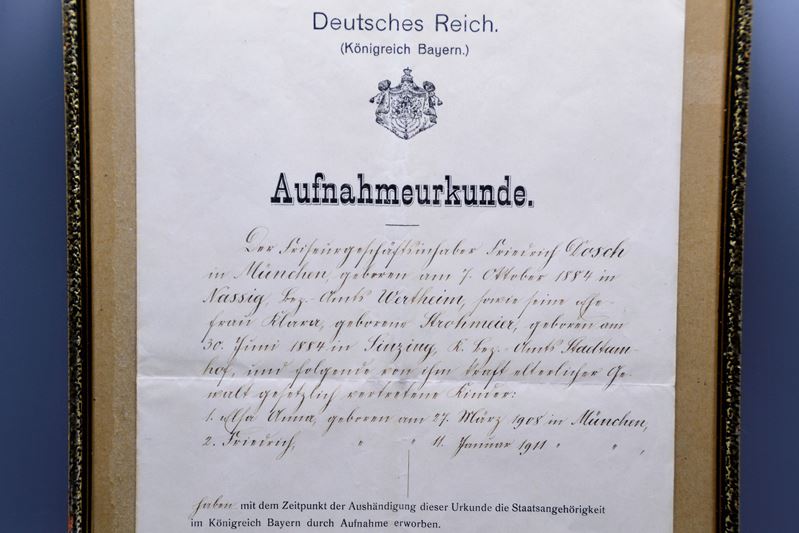 Deutsches Reich.
(Königreich Bayern.)
Aufnahmeurkunde.
Der Friseurgeschäftsinhaber Friedrich Dosch
in München, geboren am 7. Oktober 1884 in
Nassig, Bez.-Amts Wertheim, sowie seine Ehe-
frau Klara, geborene Strohmeier, geboren am
30. Juni 1884 in Sinzing, K. Bez.-Amts Stadtam-
hof, und folgende von ihm kraft elterlicher Ge-
walt gesetzlich vertretene Kinder:
1. Elsa Anna, geboren am 27. März 1908 in München,
2. Friedrich, " " 11. Januar 1911 " " ,
haben mit dem Zeitpunkt der Aushändigung dieser Urkunde die Staatsangehörigkeit
im Königreich Bayern durch Aufnahme erworben.